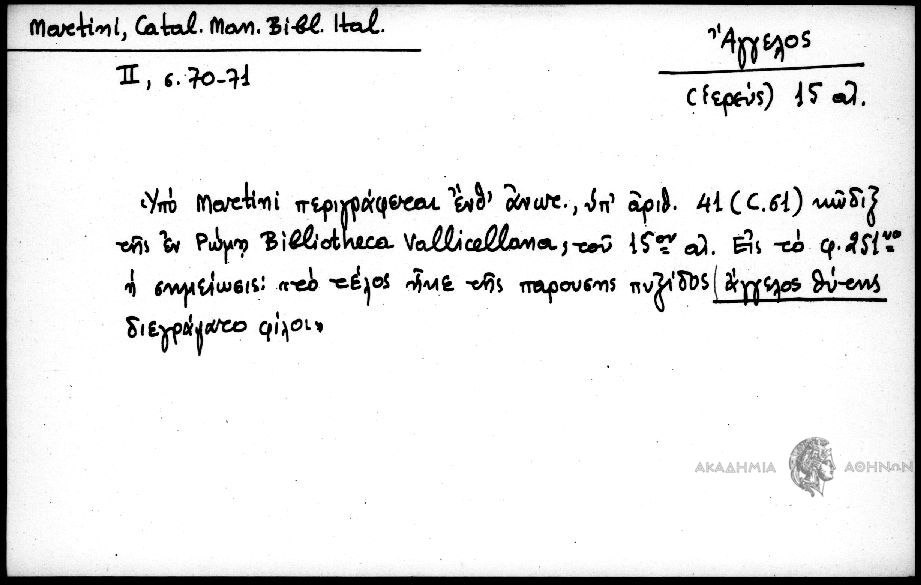 Martini, Catal. Man. Bibl. Ital.
II, σ. 70-71
Ἄγγελος
(ἱερεύς) 15 αἰ.
Ὑπὸ Martini περιγράφεται ἔνθ' ἄνωτ., ὑπ' ἀριθ. 41 (C.61) κῶδιξ
τῆς ἐν Ρώμῃ Bibliotheca Vallicellana, τοῦ 15ου αἰ. Εἰς τὸ φ. 251νο
ἡ σημείωσις: «τὸ τέλος ἧκε τῆς παρουσης πυξίδος / ἄγγελος θύτης
διεγράψατο φίλοι»
ΑΚΑΔΗΜΙΑ ΑΘΗΝΩΝ